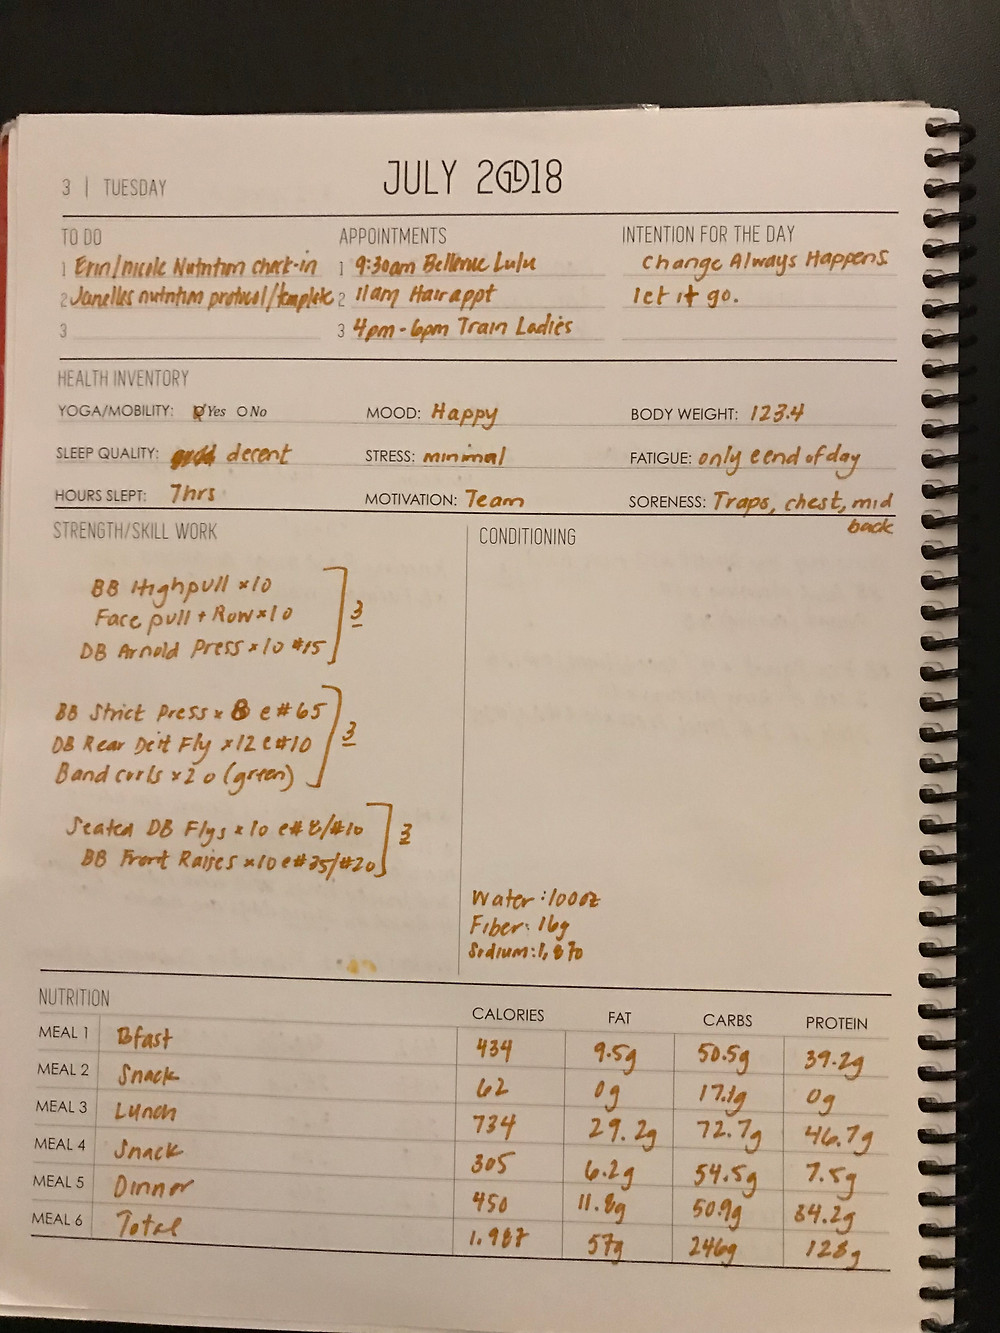 JULY 2018
3 | TUESDAY
TO DO
1 Erin/nicole Nutrition check-in
2 Janelles nutrition protocal/template
3
APPOINTMENTS
1 9:30am Bellevue Lulu
2 11am Hair appt
3 4pm-6pm Train Ladies
INTENTION FOR THE DAY
Change Always Happens
let it go.
HEALTH INVENTORY
YOGA/MOBILITY: Yes No
MOOD: Happy
BODY WEIGHT: 123.4
SLEEP QUALITY: decent
STRESS: minimal
FATIGUE: only e end of day
HOURS SLEPT: 7hrs
MOTIVATION: Team
SORENESS: Traps, chest, mid
back
STRENGTH/SKILL WORK
BB Highpull x10
Face pull + Row x10
DB Arnold Press x10 #15
3
BB Strict Press x 8 e #65
DB Rear Delt Fly x12 e #10
Band curls x20 (green)
3
Seated DB Flys x10 e #8/#10
BB Front Raises x10 e #35/#20
3
CONDITIONING
Water: 100oz
Fiber: 16g
Sodium: 1,870
NUTRITION CALORIES FAT CARBS PROTEIN
MEAL 1 Bfast 434 9.5g 50.5g 39.2g
MEAL 2 Snack 62 0g 17.1g 0g
MEAL 3 Lunch 734 29.2g 72.7g 46.7g
MEAL 4 Snack 305 6.2g 54.5g 7.5g
MEAL 5 Dinner 450 11.8g 50.9g 34.2g
MEAL 6 Total 1,987 57g 246g 128g